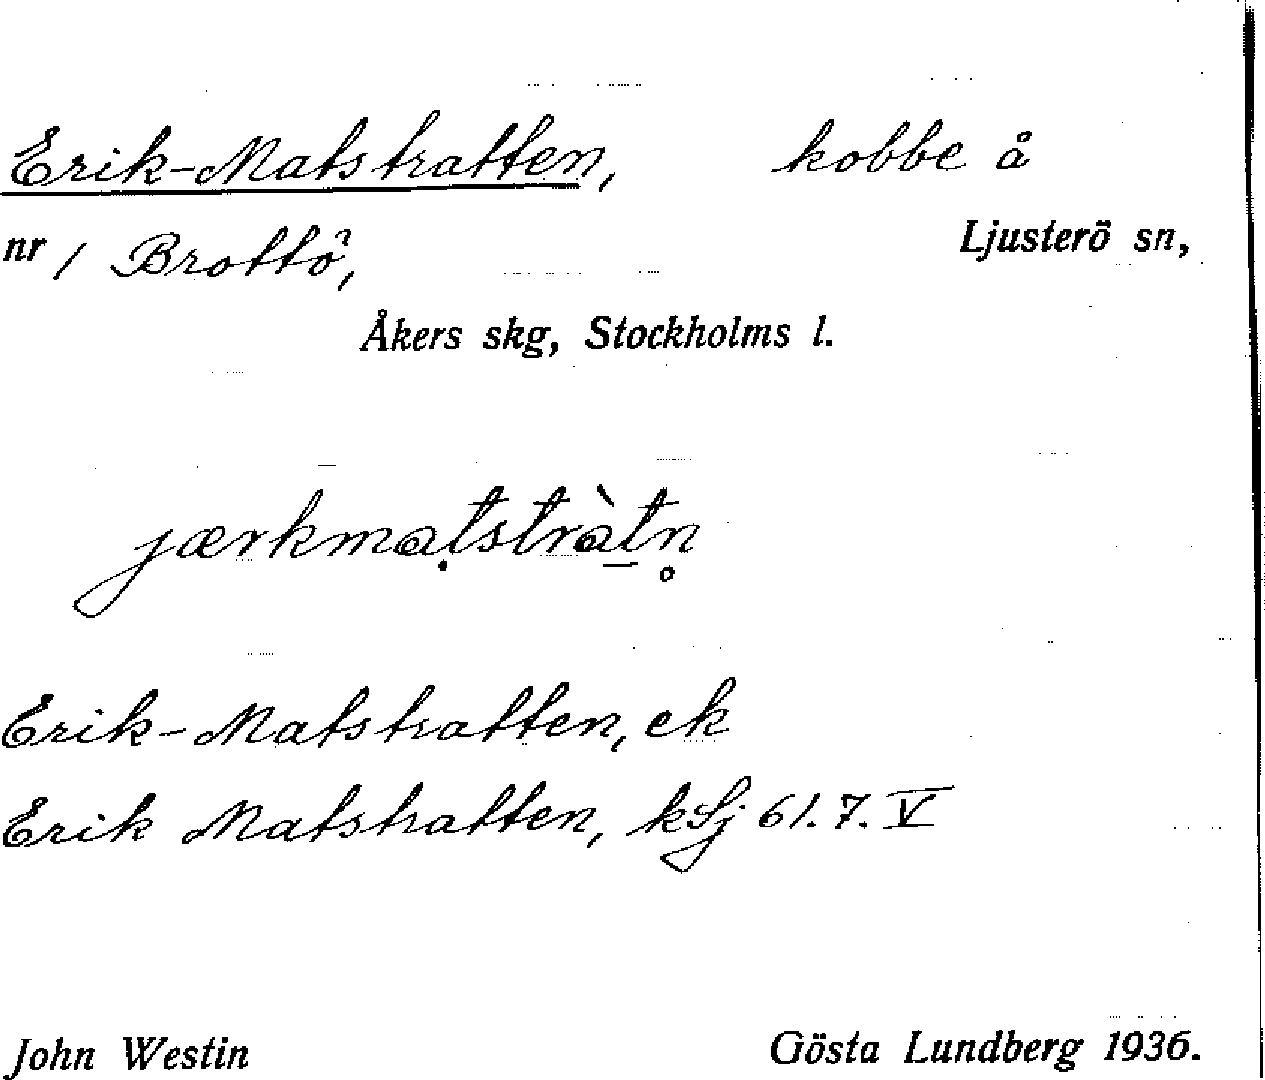 Erik-Matstratten, kobbe å
nr 1 Brottö, Ljusterö sn,
Åkers skg, Stockholms l.
jærkmaṭstràt̠n̥
Erik-Matstratten, ek
Erik Matstratten, kLj 61.7. V
John Westin Gösta Lundberg 1936.